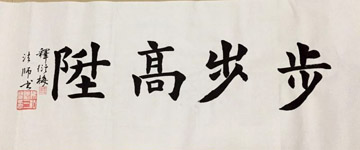 步步高陞
釋衍棱
法師書